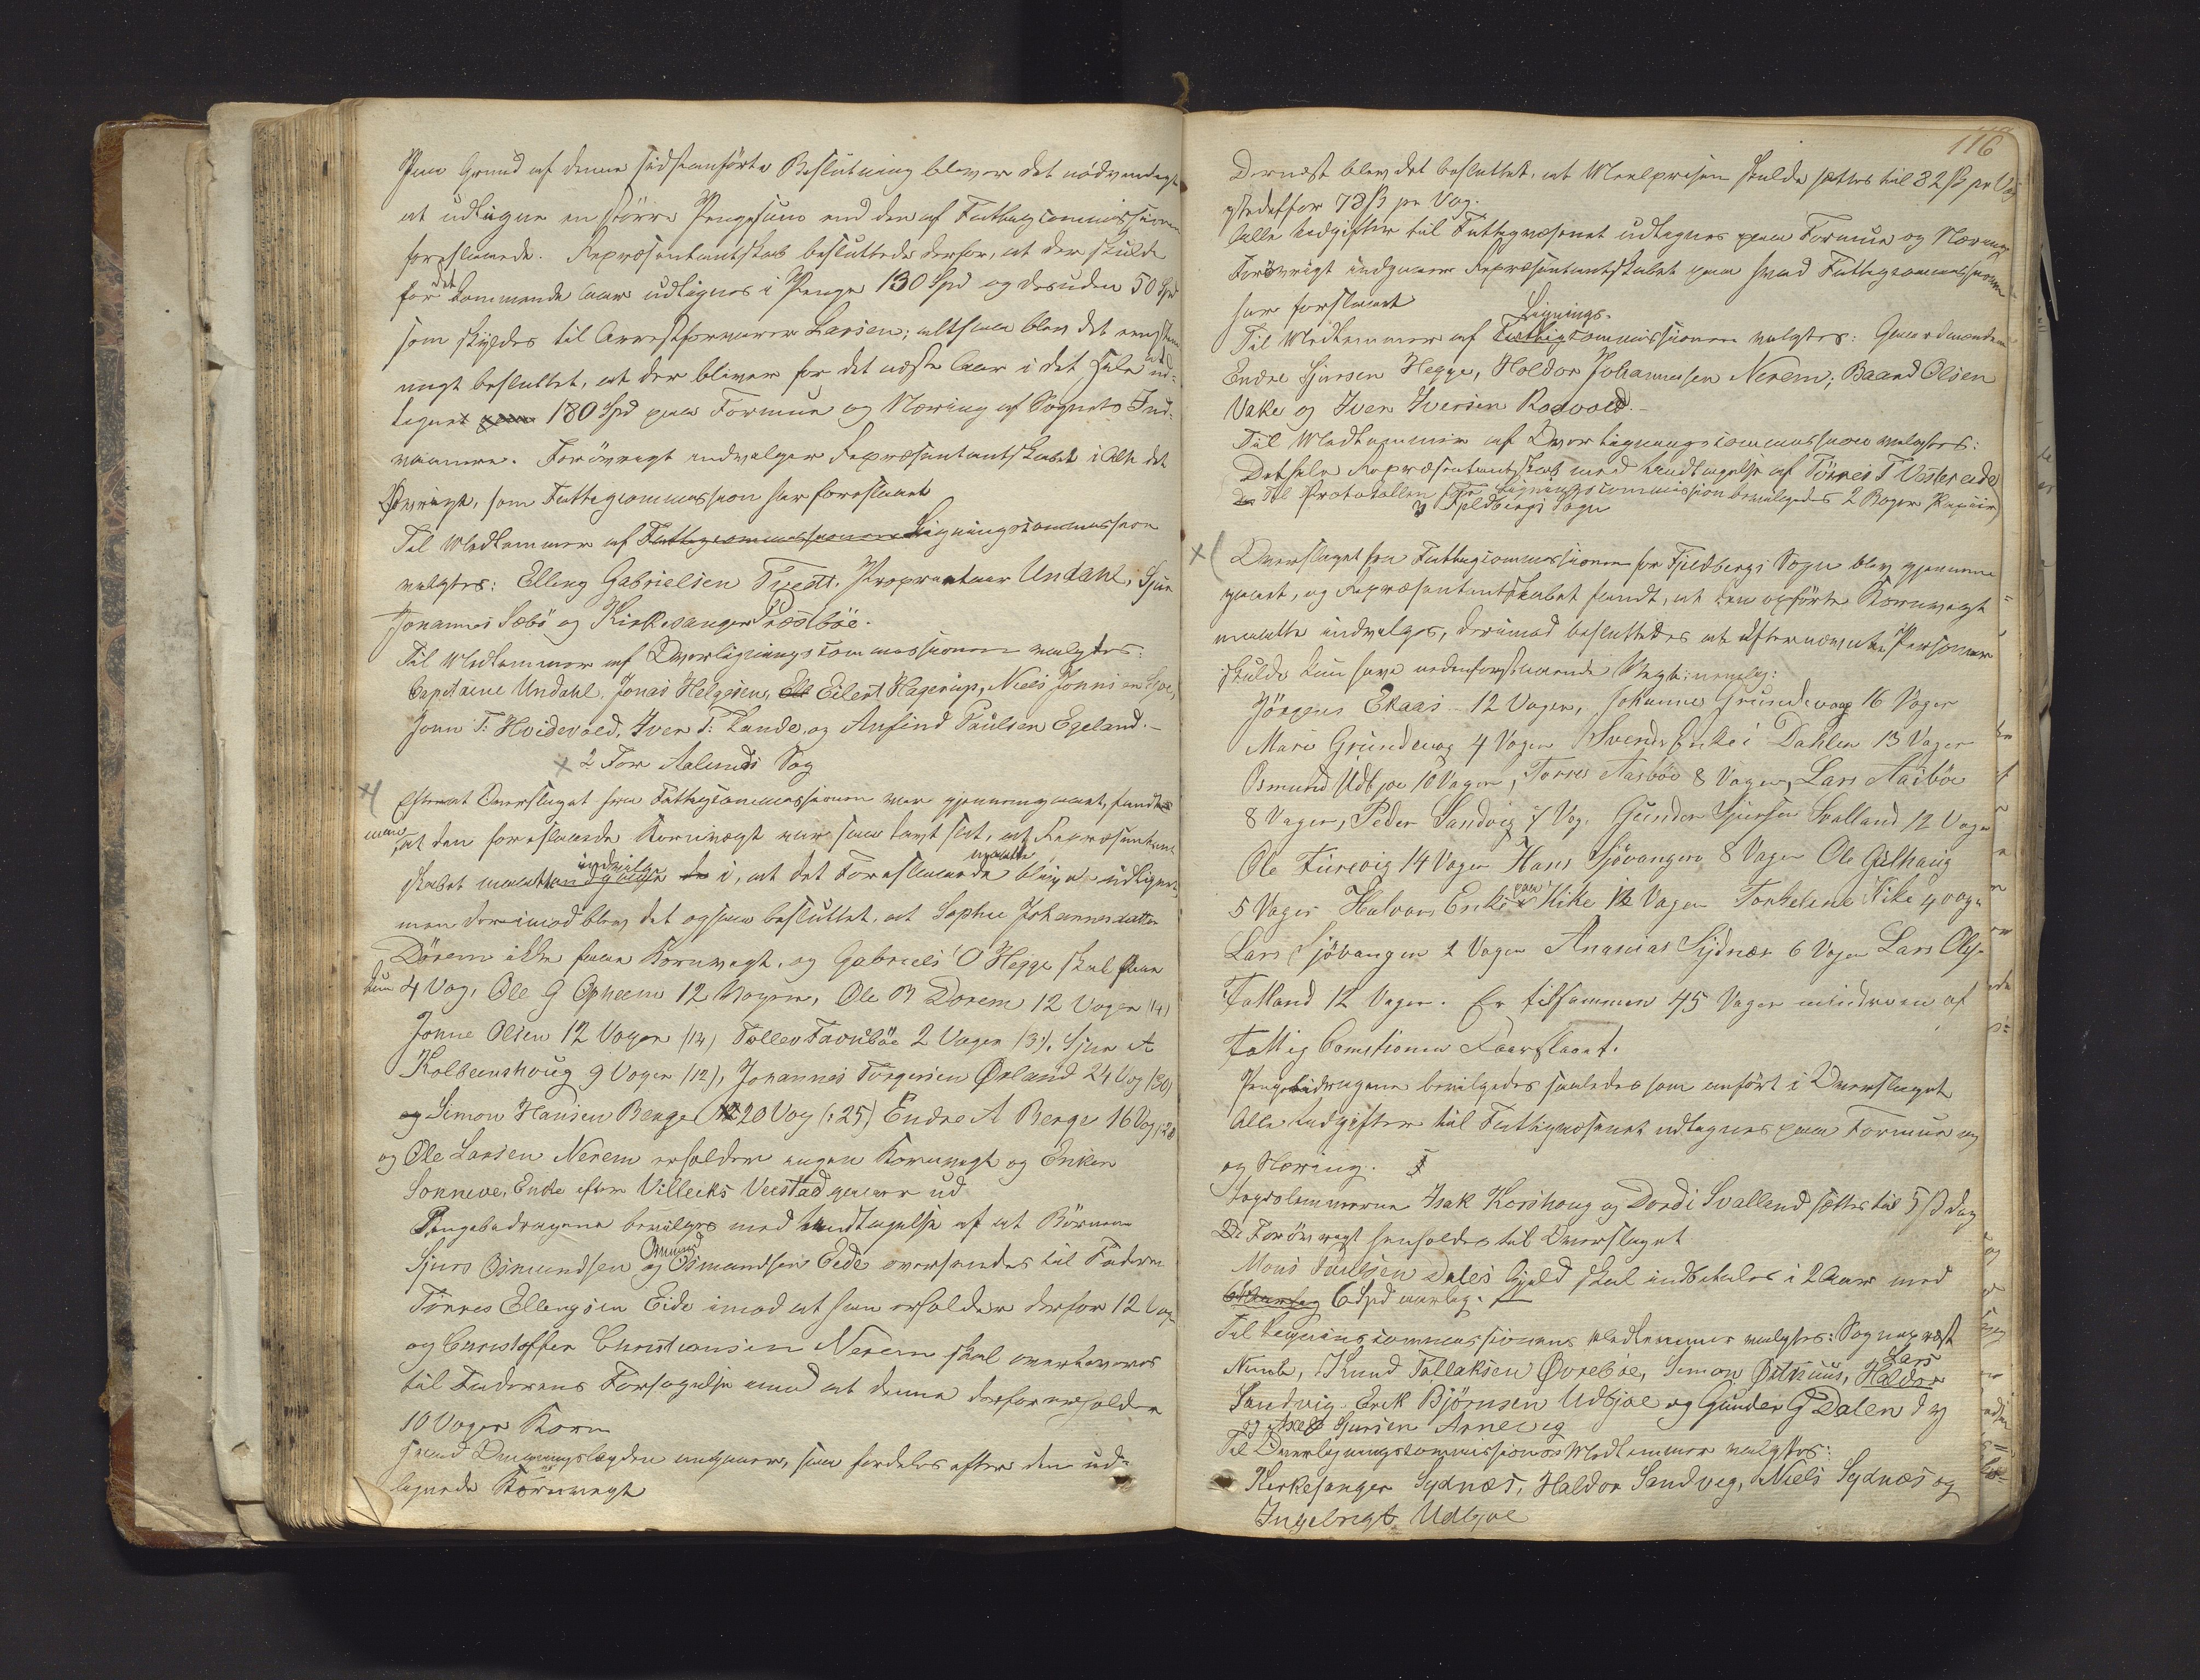 Paa Grund af denne sidstanförte Beslutning bliver det nödvendigt
at udligne en större Pengesum end den af Fattigcommissionen
foreslaaede. Repræsentantskab besluttede derfor, at der skulde
for det kommende Aar udlignes i Penge 130 Spd og desuden 50 Spd
som skyldes til Arrestforvarer Larsen; altsaa blev det eenstem
migt besluttet, at der bliver for det næste Aar i det Hele ud-
lignet paa 180 Spd paa Formue og Næring af Sognets Ind-
vaanere. Forövrigt indvilger Repræsentantskabet i Alt det
Övrige, som Fattigcommission har foreslaaet
Til Medlemmer af Fattigcommissionen Ligningscommission
valgtes: Elling Gabrielsen Tvedt, Proprietair Undahl, Sjur
Johannes Sæbö og Kirkesanger Præstböe.
Til Medlemmer af Overligningscommissionen valgtes:
Capitaine Undahl, Jonas Helgesen, Ell Eilert Hagerup, Niels Jonnsen
Jonn T. Hvidevold, Iver T. Lunde, og Anfind Paulsen Egeland.-
x 2 For Aalunds Sog
x( Efterat Overslaget fra Fattigcommissionen var gjennemgaaet, fandt
man, at den foreslaaede Kornvægt var saa lavt sat, at Repræsentant
skabet maatte indgaae indvilge de i, at det Foreslaaede maatte blive udlignet
men derimod blev det ogsaa besluttet, at Sophie Johannesdatter
Dörem ikke faaer Kornvægt, og Gabriels O Hegge skal faae
kun 4 Vog, Ole G Opheim 12 Voger, Ole B Dorem 12 Voger (14)
Jonne Olsen 12 Voger (14) Tollev Tavnböe 2 Voger (3), Sjur A
Kolbeenshoug 9 Voger (12), Johannes Torgersen Ørland 24 Vog (30)
og Simon Hansen Berge 20 Vog (25) Endre A Berge 16 Vog (20
og Ole Larsen Nerem erholder ingen Kornvægt og Enken
Sonneve, Enke efter Villecks Veestad gaaer ud
Pengebidragene bevilges med Undtagelse af at Börnene
Sjurs Osmundsen og Osmund Osmundsen Eide oversendes til Faderen
Tönnes Ellingsen Eide imod at han erholder derfor 12 Vog
og Christoffer Christiansen Nerem skal overleveres
til Faderens Forsörgelse imod at denne derfor erholder
10 Voger Korn
hvad Omgangslægden angaaer, saa fordeles efter den ud-
lignede Kornvægt
116
Dernæst blev det besluttet, at Meelprisen skulde sættes til 82 ß pr Vog
istedetfor 78 ß pr Vog.
Alle Udgifter til Fattigvæsenet udlignes paa Formue og Næring
Forövrigt indgaaer Repræsentantskabet paa hvad Fattigcommissionen
har foreslaaet
Til Medlemmer af Fattig Lignings-commissionen valgtes: Gaardmændene
Endre Sjursen Hegge, Holdor Johannesen Nerem, Baard Olsen
Vake og Iver Iversen Rosvold.-
Til Medlemmer af Overligningscommission valgtes:
Det hele Repræsentantskab med Undtagelse af Tönnes T Vestereide
Til Protokollen for Ligningscommission bevilgedes 2 Böger Papiir
3 Fjeldbergs Sogn
x( Overslaget fra Fattigcommissionen for Fjeldbergs Sogn blev gjennem
gaaet, og Repræsentantskabet fandt, at den opförte Kornvægt
maatte indvilges, derimod besluttedes at efternævnte Personer
skulde kun have nedenforstaaende Vægt: nemlig:
Jörgens Ekaas 12 Voger, Johanne Grundevog 16 Voger
Mari Grundevog 4 Voger Svends Enke i Dahlen 13 Voger
Osmund Udbjoe 10 Voger, Torres Aasböe 8 Voger, Lars Aasböe
8 Voger, Peder Sandvig 7 Vog. Gunder Sjursen Svalland 12 Voger
Ole Furevig 14 Voger Hans Sjövangen 8 Voger Ole Gilhaug
5 Voger Halvors Enke paa Kike 12 Voger Torkeline Kike 4 Vog
Lars Sjövangen 2 Voger Ananias Sydnæs 6 Voger Lars Ols
Fatland 12 Voger. Er tilsammen 45 Voger mindre en af
Fattig Comitionen Foorslaaet.
Pengebidragene bevilgedes saaledes som anfört i Overslaget
Alle Udgifter til Fattigvæsenet udlignes paa Formue og
og Næring.
Lægdslemmerne Isak Korshoug og Dordi Svalland sættes til 5 ß Dag
De Forövrigt henholdes til Overslaget
Mons Paulsen Dales Gjeld skal indbetales i 2 Aar med
6 Spd aarlig.
Til Ligningscommissionens Medlemmer valgtes: Sognepræst
Knud Tollaksen Øvreböe, Simon Østhuus, Haldor Lars
Sandvig Erik Björnsen Udbjoe og Gunder G Dalen
og Axel Gursen Arnevig
Til Overligningscommissionens Medlemmer valgtes:
Kirkesanger Sydnæs, Haldor Sandvig, Niels Sydnæs og
Ingebrigt Udbjoe